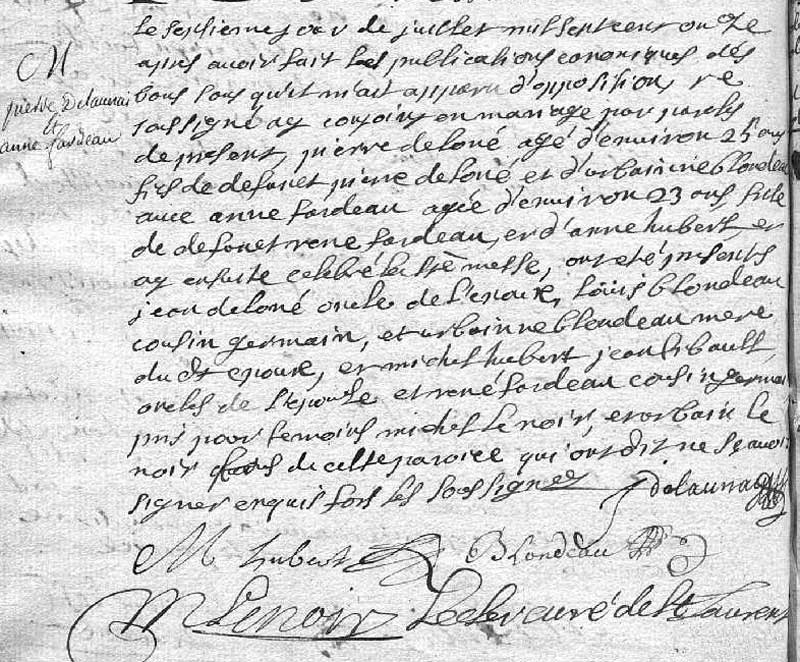 M
pierre Delaunai
et
anne fardeau
le septiesme jour de juillet mil sept cent onze
apres avoir fait les publications canoniques des
bans sans qu'il m'ait apparu d'opposition, je
soussigné ay conjoint en mariage par parolles
de present, pierre deloné agé d'environ 25 ans
fils de defunct pierre deloné et d'urbainne blondeau
avec anne fardeau agée d'environ 23 ans fille
de defunct rené fardeau, et d'anne hubert, et
ay ensuite celebré la ste messe, ont été présents
jean deloné oncle de l'epoux, Louis blondeau
cousin germain, et urbainne blondeau mere
du dt epoux, et michel hubert jean
oncles de l'epouse et rené fardeau cousin germain
pris pour temoins michel le noir, et urbain le
noir de cette paroice qui ont dit ne sçavoir
signer enquis fors les soussignes
J delaunay
M hubert Blondeau
M Lenoir Leclerc curé de St Laurent